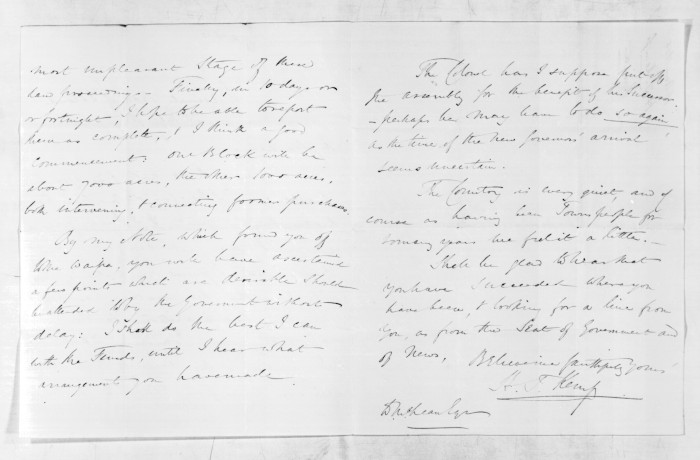 most unpleasant Stage of these
new proceedings. Finally, in 10 days or
or fortnight I hope to be able to report
them as complete, & I think a good
Commencement: one Block will be
about 7000 acres, the other 5000 acres,
both intervening, & connecting former purchases.
By my Note, which found you off
the Waipa, you will have ascertained
a few points which are desirable should
be attended to by the Government without
delay: I shall do the best I can
with the Funds, until I hear what
arrangements you have made.
The Colonel has I suppose put off
the assembly for the benefit of his Successor.
- perhaps he may have to do so again
as the time of the New Governors' arrival
seems uncertain.
The Country is very quiet and of
course as having been Townspeople for
so many years we feel it a little. -
I shall be glad to hear that
you have Succeeded where you
have been, & looking for a line from
you, as from the Seat of Government and
of News,
Believe me faithfully yours'
H. T. Kemp
D McLean Esqr